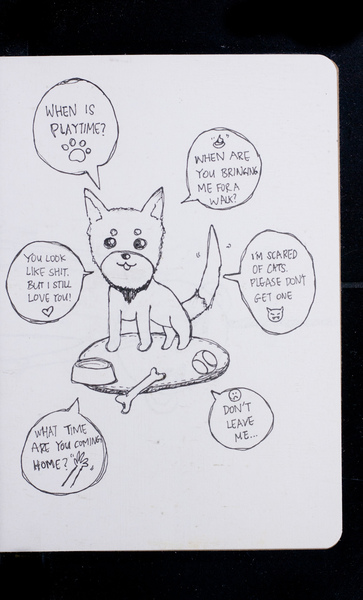 WHEN IS
PLAYTIME?
WHEN ARE
YOU BRINGING
ME FOR A
WALK?
YOU LOOK
LIKE SHIT.
BUT I STILL
LOVE YOU!
I'M SCARED
OF CATS.
PLEASE DON'T
GET ONE
DON'T
LEAVE
ME...
WHAT TIME
ARE YOU COMING
HOME?